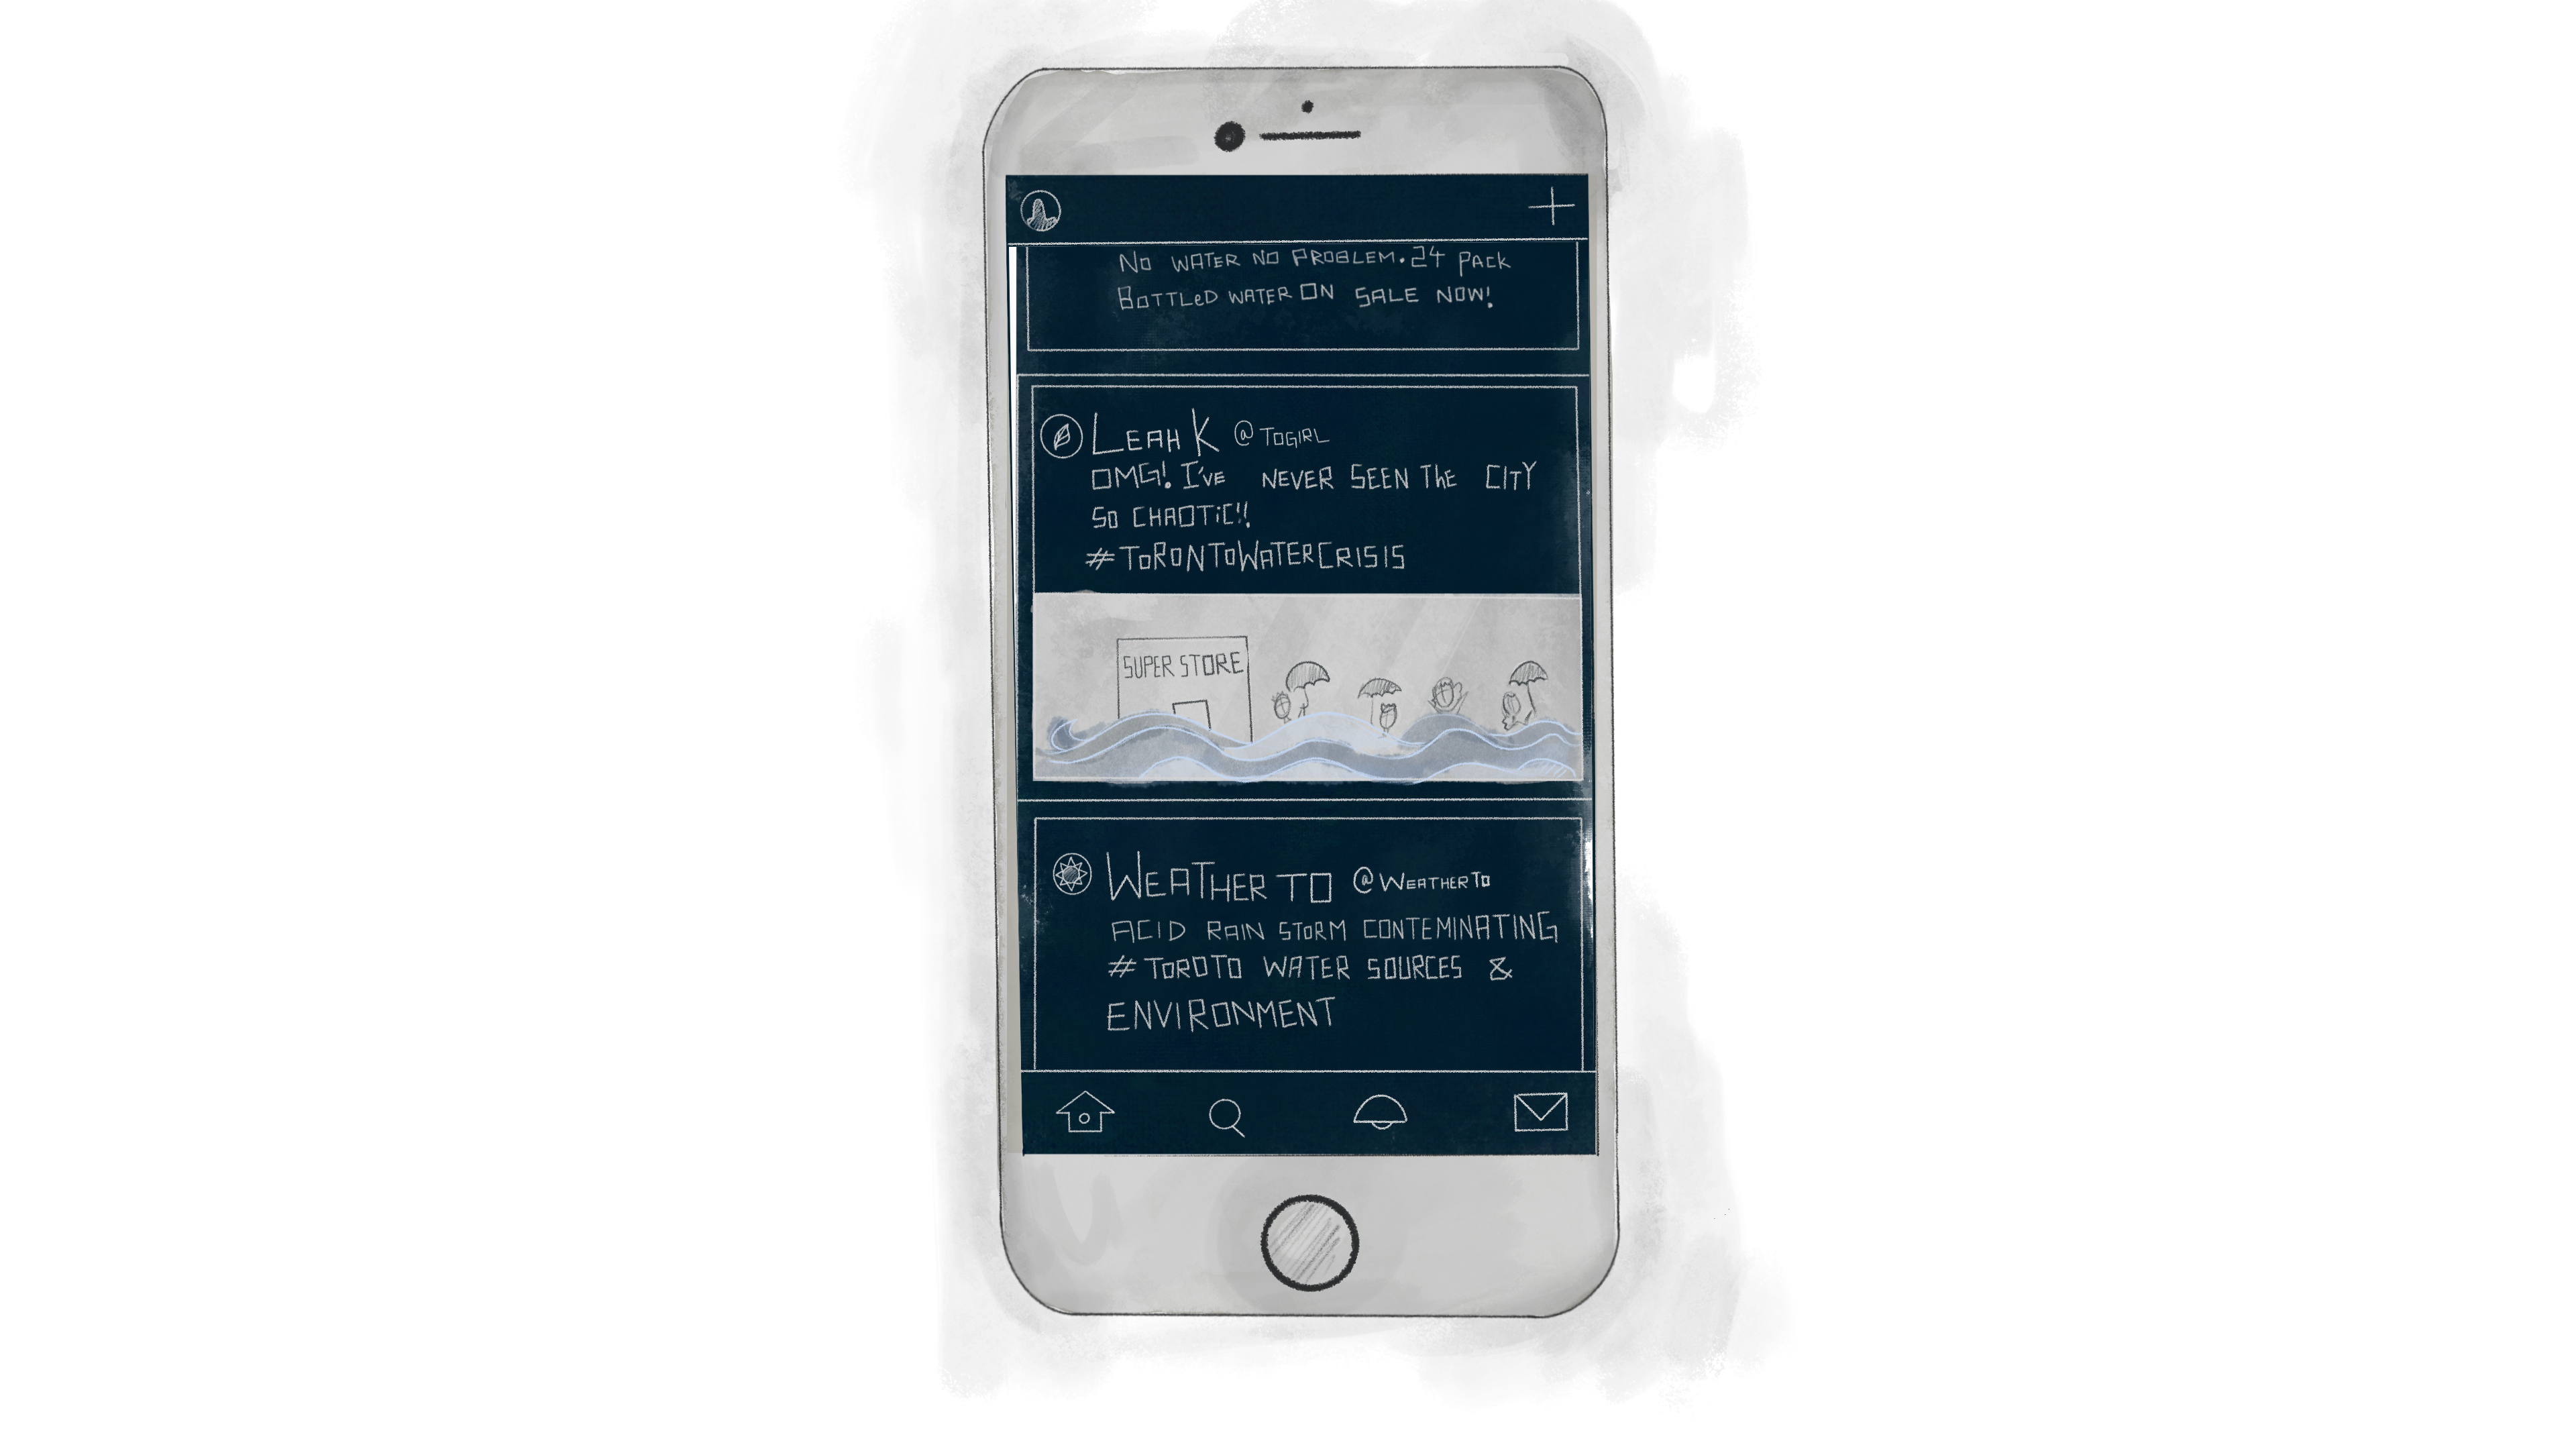 No WATER NO PROBLEM. 24 PACK
BOTTLeD WATER ON SALE NOW!
LEAH K @TOGIRL
OMG! I'VE NEVER SEEN ThE CITY
SO CHAOTiC!!
#ToRONToWATERCRISIS
SUPER STORE
WEATHER TO @WEATHERTO
ACID RAIN STORM CONTEMINATING
#TOROTO WATER SOURCES &
ENVIRONMENT